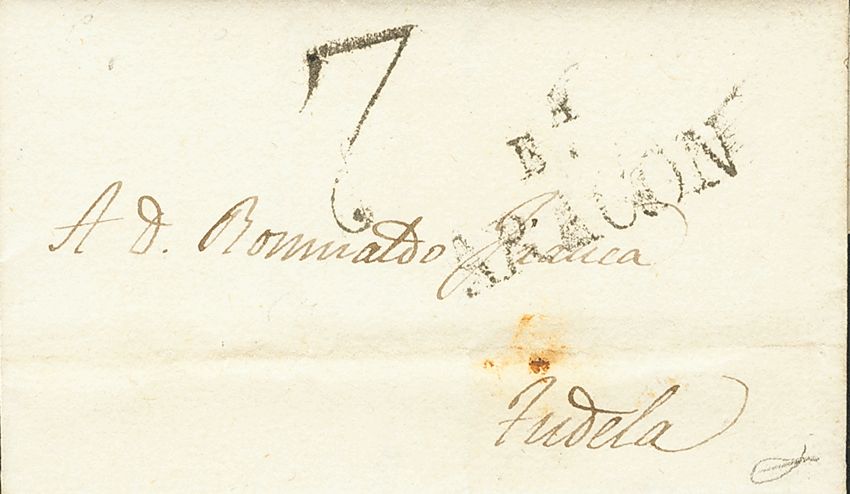 7
B4
ARAGON
A D. Romualdo
Tudela